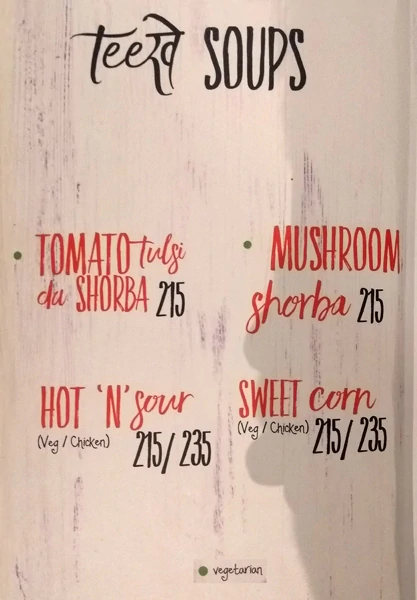 Teeखे SOUPS
TOMATO tulsi
da SHORBA 215
MUSHROOM
shorba 215
HOT 'N' sour
(Veg / Chicken)
215/ 235
SWEET corn
(Veg / Chicken) 215/ 235
vegetarian